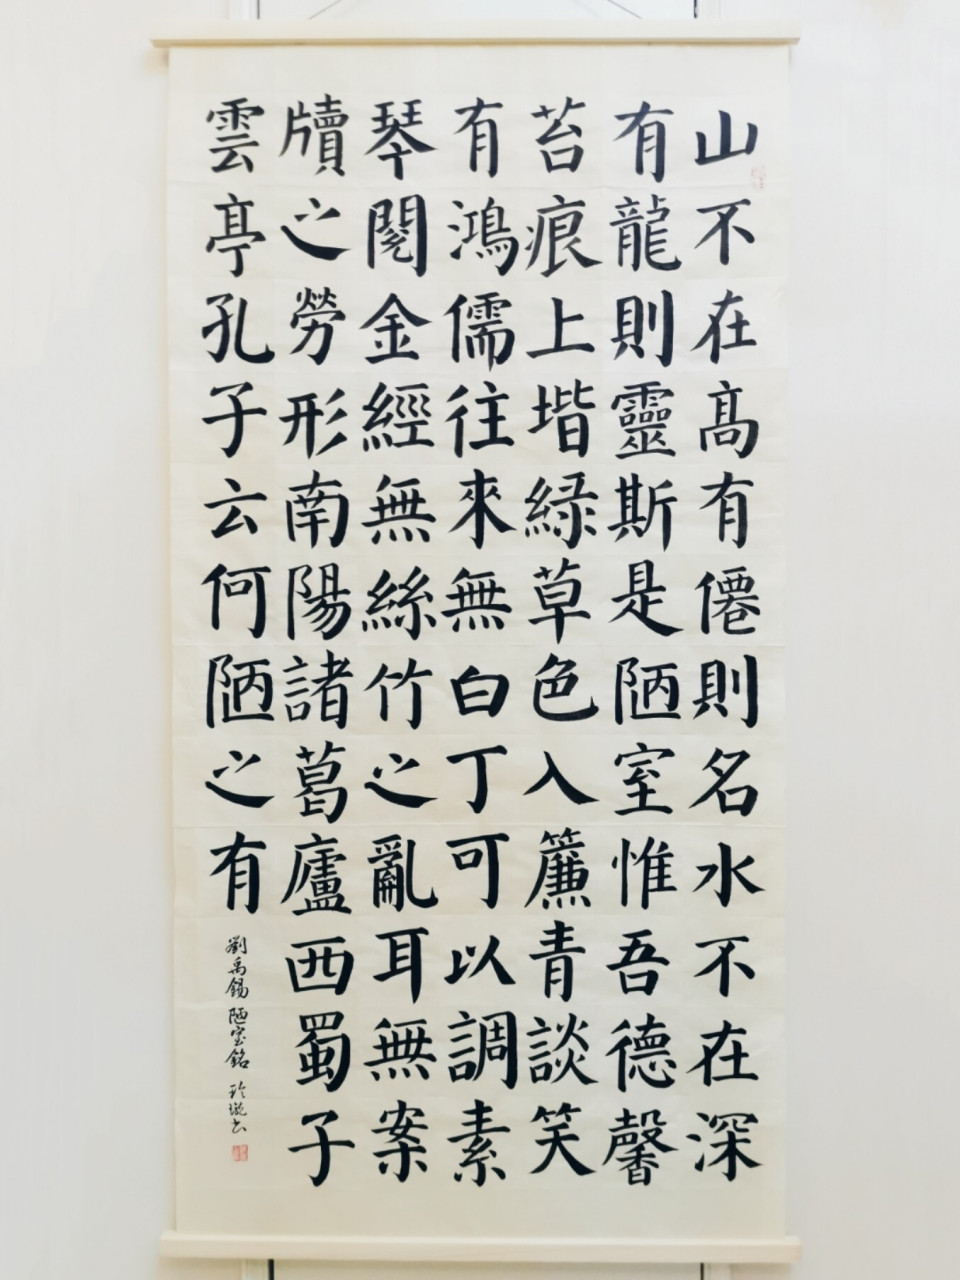 山不在高有僊則名水不在深
有龍則靈斯是陋室惟吾德馨
苔痕上堦綠草色入簾青談笑
有鴻儒往來無白丁可以調素
琴閱金經無絲竹之亂耳無案
牘之勞形南陽諸葛廬西蜀子
雲亭孔子云何陋之有
劉禹錫陋室銘